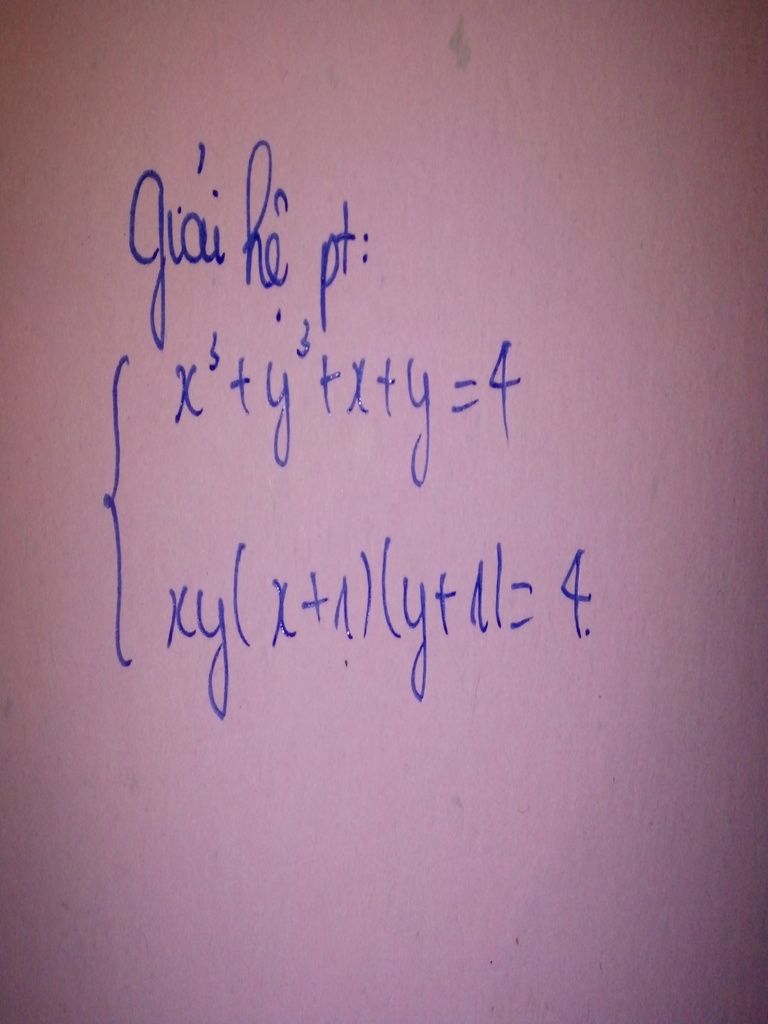 Giải hệ pt:
x³ + y³ + x + y = 4
xy(x+1)(y+1) = 4.